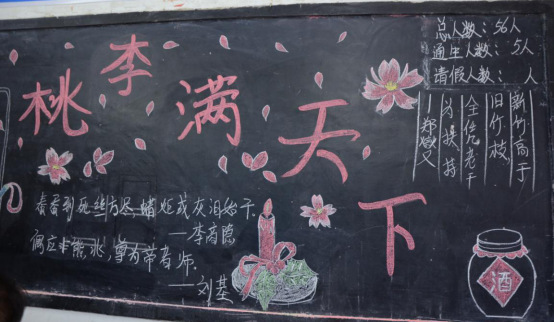 桃李满天下
总人数：56人
通生人数：5人
请假人数： 人
新竹高于
旧竹枝,
全凭老干
为扶持
—郑燮
春蚕到死丝方尽,蜡炬成灰泪始干
—李商隐
偶应非熊兆,尊为帝者师.
—刘基
酒